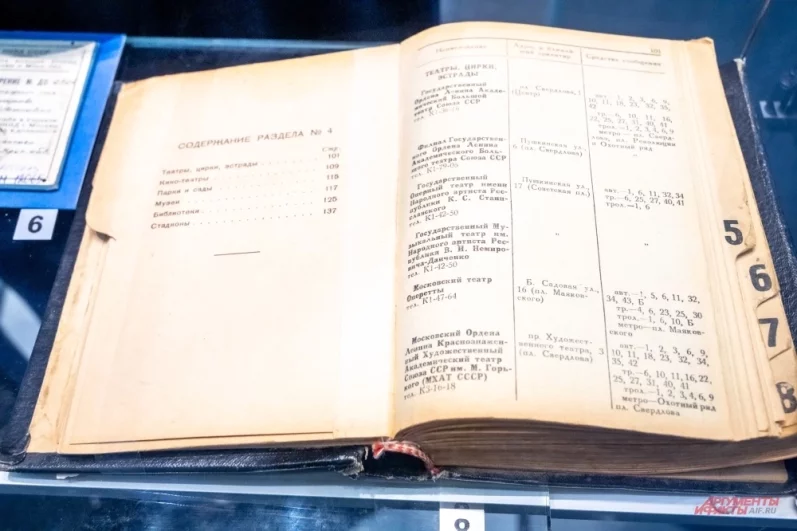 6
СОДЕРЖАНИЕ РАЗДЕЛА № 4
Стр.
Театры, цирки, эстрады 101
Кино-театры 109
Парки и сады 115
Музеи 117
Библиотеки 125
Стадионы 137
Наименование
Средства сообщения
ТЕАТРЫ, ЦИРКИ,
ЭСТРАДЫ
Государственный
Ордена Ленина Акаде-
мический Большой
театр Союза ССР
пл. Свердлова,
авт.—1, 2, 3, 6, 9,
10, 11, 18, 23, 32,
тр.—6, 10, 11, 16,
22, 25, 27, 31, 40, 41
трол.—1, 2, 3, 4, 6, 9
метро—пл. Сверд-
лова, пл. Революции
и Охотный ряд
Филиал Государствен-
ного Ордена Ленина
Академического Боль-
шого театра Союза ССР
Пушкинская ул.,
6 (пл. Свердлова)
"
Государственный
Оперный театр имени
Народного артиста Рес-
публики К. С. Стани-
славского
тел. К1-42-50
Пушкинская ул.,
17 (Советская пл.)
авт.—1, 6, 11, 32, 34
тр.—6, 25, 27, 40, 41
трол.—1, 6
Государственный Му-
зыкальный театр им.
Народного артиста Рес-
публики В. И. Немиро-
вича-Данченко
тел. К1-42-50
"
"
Московский театр
Оперетты
тел. К1-47-64
Б. Садовая ул.,
16 (пл. Маяков-
ского)
авт.—1, 5, 6, 11, 32,
34, 43, Б
тр.—4, 6, 23, 25, 30
трол.—1, 6, 10, Б
метро—пл. Маяков-
ского
Московский Ордена
Ленина Краснознамен-
ный Художественный
Академический театр
Союза ССР им. М. Горь-
кого (МХАТ СССР)
тел. К3-16-18
пр. Художест-
венного театра, 3
(пл. Свердлова)
авт.—1, 2, 3, 6, 9,
10, 11, 18, 23, 32, 34,
35, 42
тр.—6, 10, 11, 16, 22,
25, 27, 31, 40, 41
трол.—1, 2, 3, 4, 6, 9
метро—Охотный ряд
пл. Свердлова
5
6
7
8
АРГУМЕНТЫ
И ФАКТЫ AIF.RU